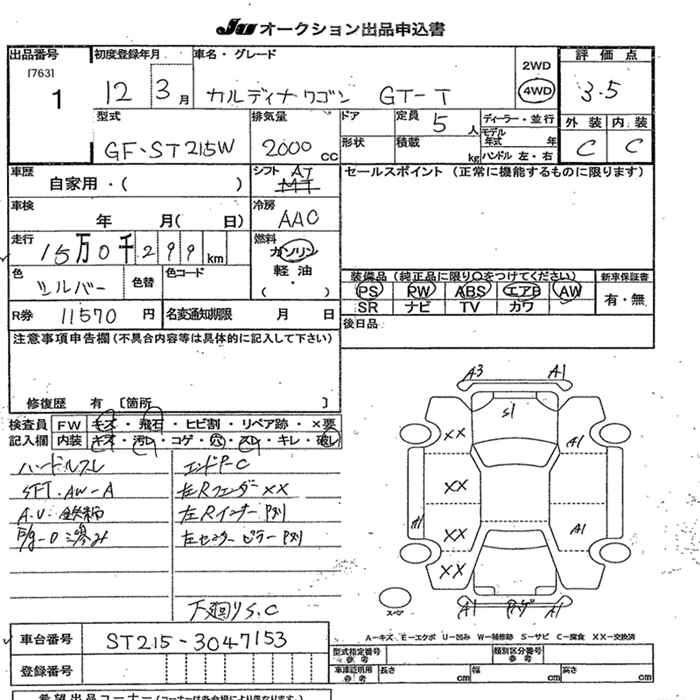 JU オークション出品申込書
出品番号 初度登録年月 車名・グレード 評価点
17631 2WD
1 12 3月 カルディナワゴン GT-T 4WD 3.5
型式 排気量 ドア 定員 5人 ディーラー・並行 外装 内装
GF-ST215W 2000cc 形状 積載 kg モデル年式 年 C C
ハンドル 左・右
車歴 シフト AT MT セールスポイント (正常に機能するものに限ります)
自家用・( )
車検 冷房
年 月( 日) AAC
走行 燃料
15万0千299km ガソリン
色 色替 色コード 軽油 装備品(純正品に限り○をつけてください) 新車保証書
シルバー ・( ) PS PW ABS エアB AW 有・無
R券 11570円 名変通知期限 月 日 SR ナビ TV カワ
後日品
注意事項申告欄(不具合内容等は具体的に記入して下さい)
修復歴 有 〔箇所 〕
検査員 FW キズ・飛石・ヒビ割・リペア跡・×要
記入欄 内装 キズ・汚れ・コゲ・穴・スレ・キレ・破れ
ハンドルスレ エンドP-C
SFT.AW-A 左Rフェンダー××
左Rインナー
下廻りS.C
A3 A1
S1
XX A1
XX
A1 XX A1
XX
スペア A1 A1
A-キズ E-エクボ U-凹み W-補修跡 S-サビ C-腐食 XX-交換済
車台番号 ST215-3047153 型式指定番号 参考 類別区分番号 参考
登録番号 車庫証明用 参考 長さ cm 幅 cm 高さ cm
希望出品コーナー